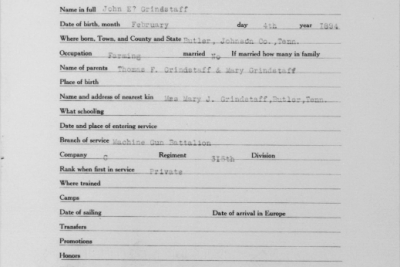 Name in full John E? Grindstaff
Date of birth, month February day 4th year 1894
Where born, Town, and County and State Butler, Johnson Co., Tenn.
Occupation Farming married No If married how many in family
Name of parents Thomas F. Grindstaff & Mary Grindstaff
Place of birth
Name and address of nearest kin Mrs Mary J. Grindstaff, Butler, Tenn.
What schooling
Date and place of entering service
Branch of service Machine Gun Battalion
Company C Regiment 316th Division
Rank when first in service Private
Where trained
Camps
Date of sailing Date of arrival in Europe
Transfers
Promotions
Honors